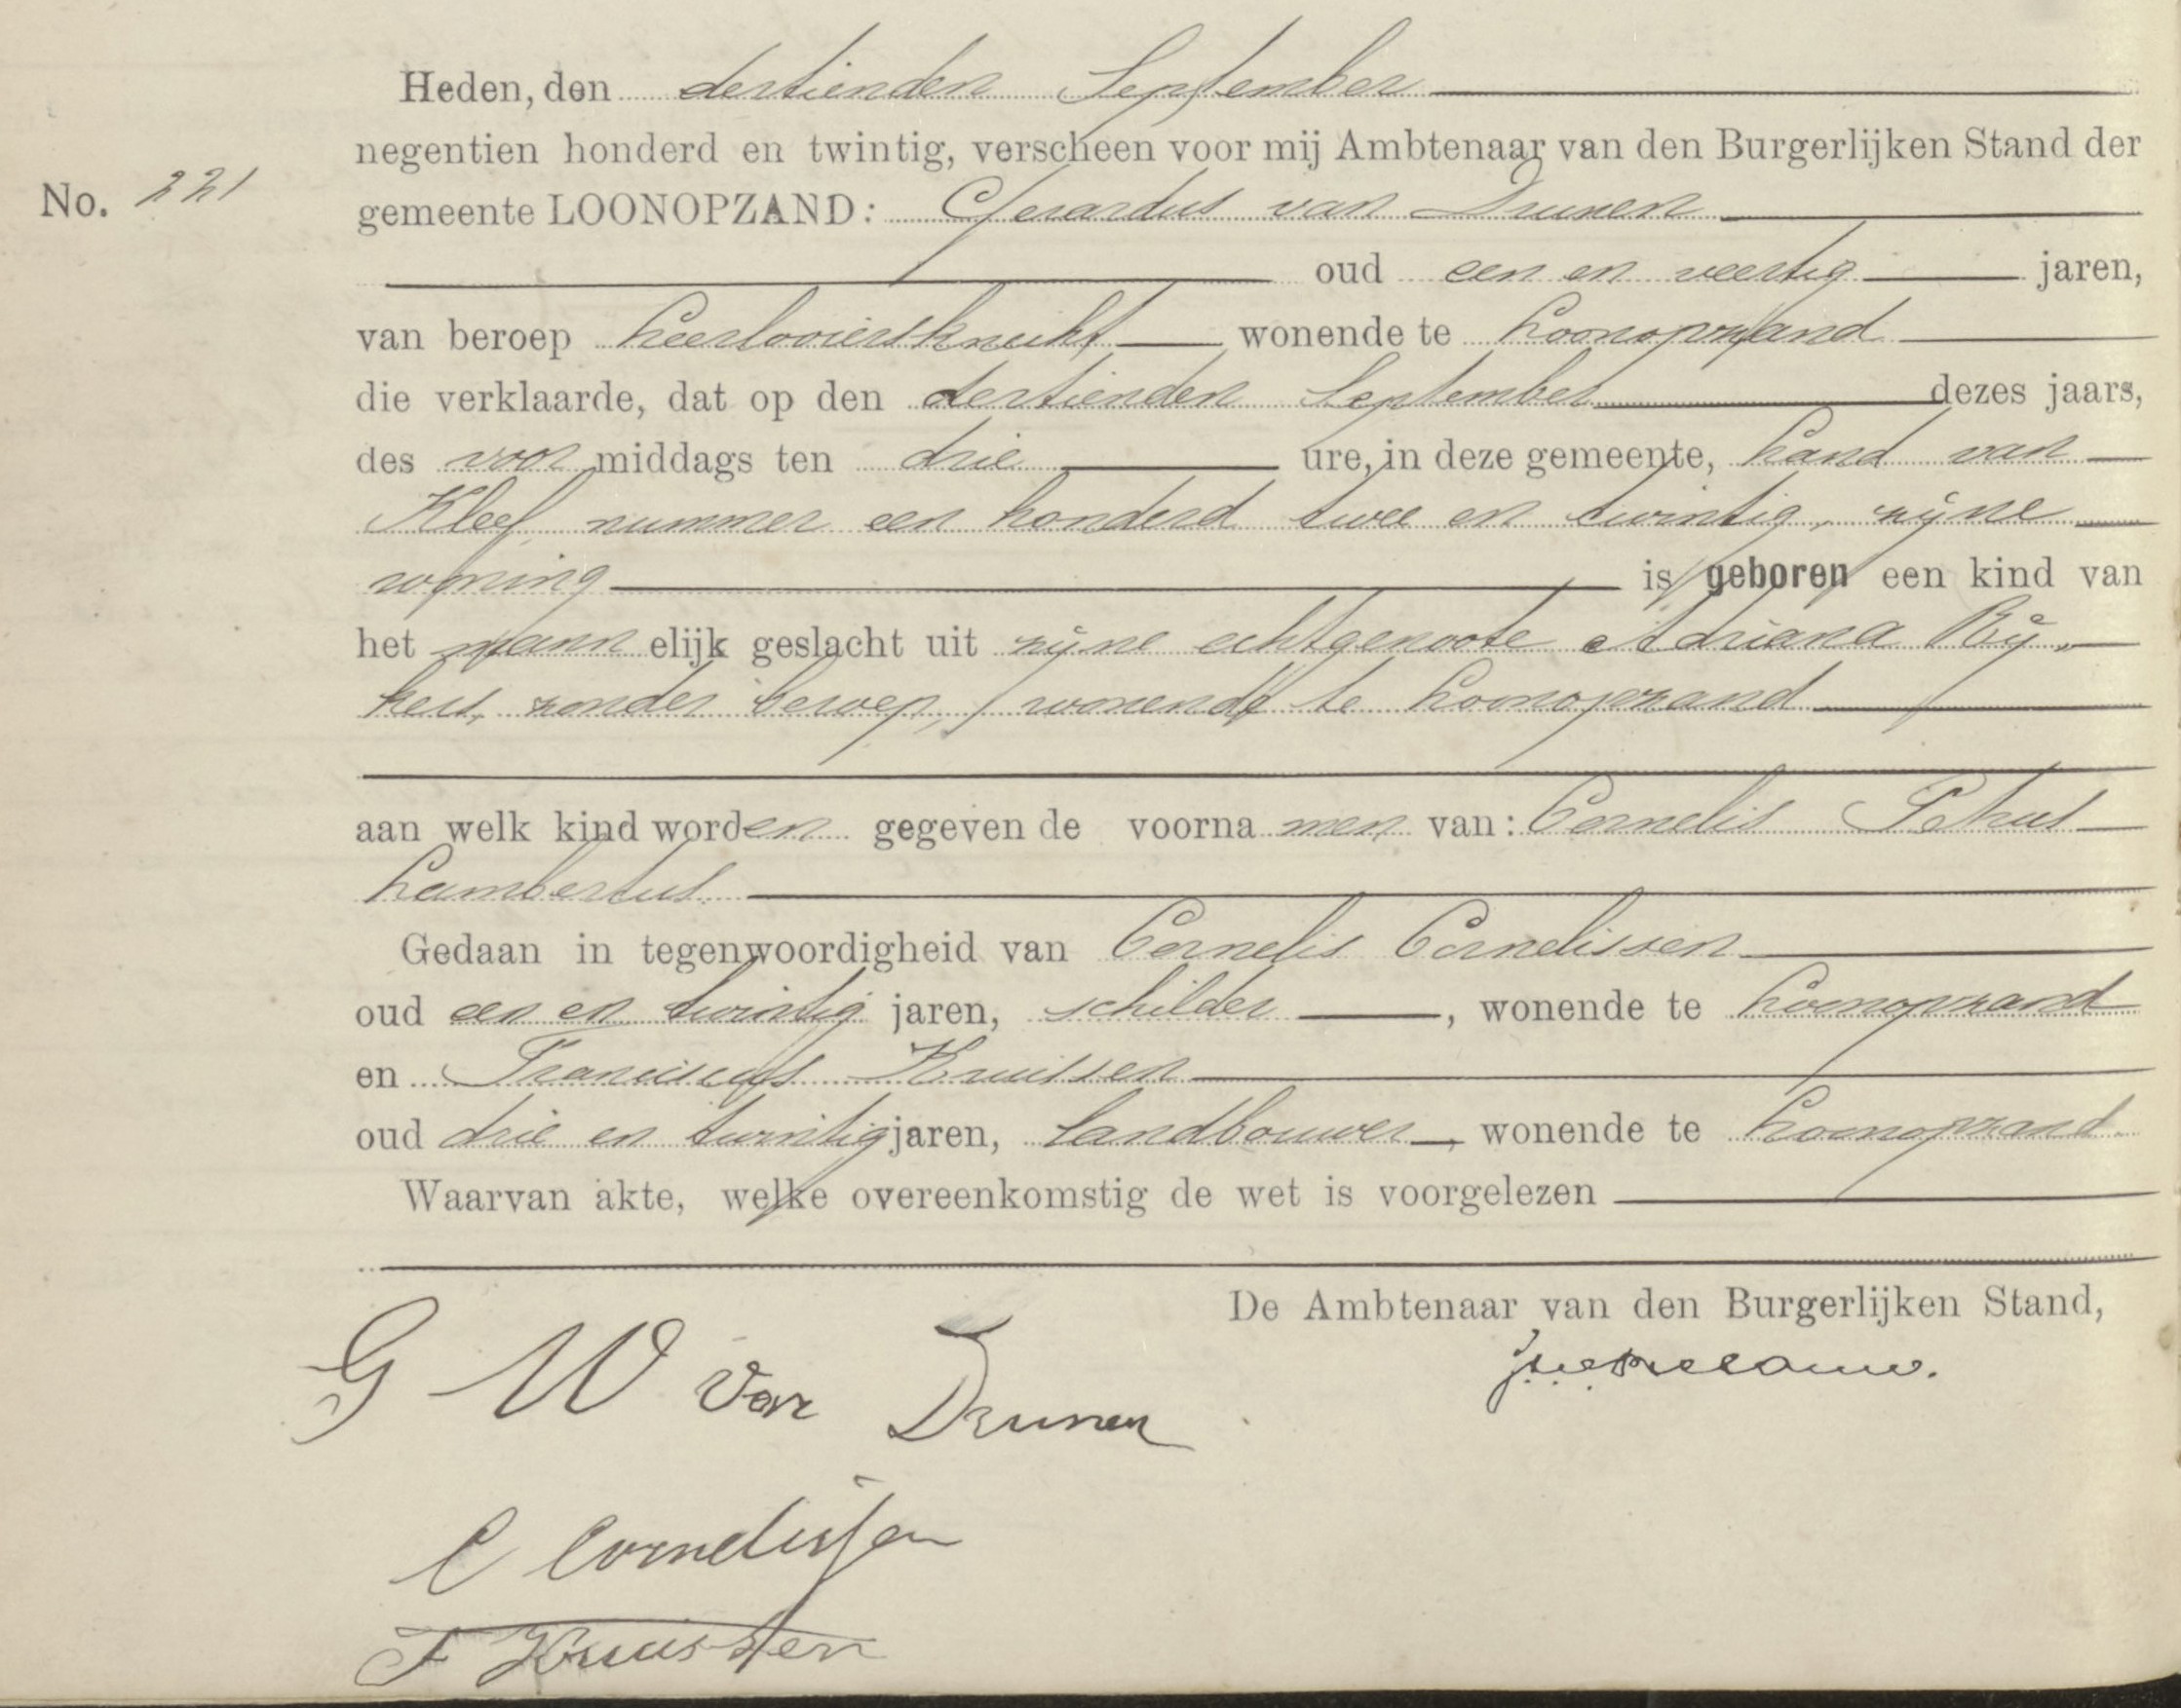 Heden, den dertienden September
negentien honderd en twintig, verscheen voor mij Ambtenaar van den Burgerlijken Stand der
No. 221
gemeente LOONOPZAND: Gerardus van Drunen
oud een en veertig jaren,
van beroep Leerlooiersknecht wonende te Loonopzand
die verklaarde, dat op den dertienden September dezes jaars,
des voor middags ten drie ure, in deze gemeente, Land van
Kleef nummer een honderd twee en twintig, zijne
woning is geboren een kind van
het mann elijk geslacht uit zijne echtgenoote Adriana Rij„
kers, zonder beroep, wonende te Loonopzand
aan welk kind worden gegeven de voorna men van: Cornelis Petrus
Lambertus
Gedaan in tegenwoordigheid van Cornelis Cornelissen
oud een en twintig jaren, schilder, wonende te Loonopzand
en Franciscus Kruissen
oud drie en twintig jaren, landbouwer, wonende te Loonopzand
Waarvan akte, welke overeenkomstig de wet is voorgelezen
De Ambtenaar van den Burgerlijken Stand,
G W van Drunen
C Cornelissen
F Kruissen